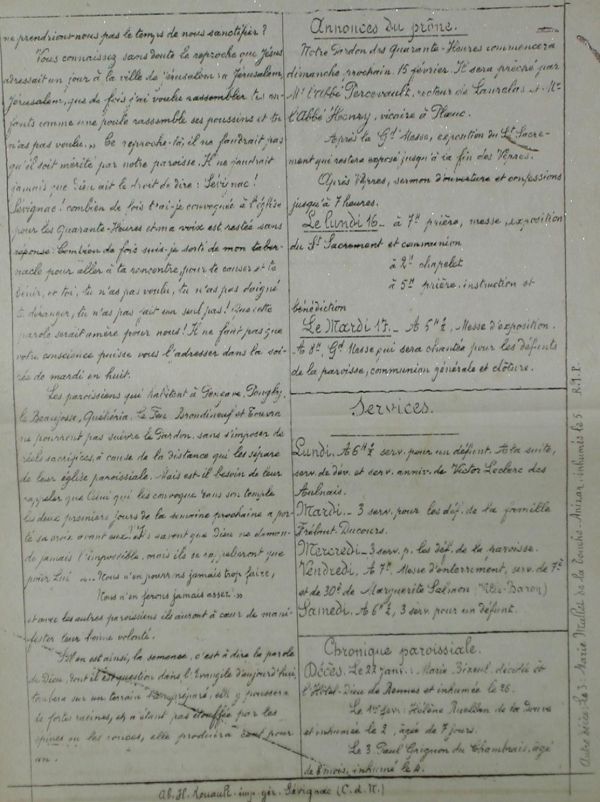 ne prendrions-nous pas le temps de nous sanctifier?
Vous connaissez sans doute le reproche que Jésus
adressait un jour à la ville de Jérusalem: « Jérusalem,
Jérusalem, que de fois j'ai voulu rassembler tes en-
fants comme une poule rassemble ses poussins et tu
n'as pas voulu.» Ce reproche-là, il ne faudrait pas
qu'il soit mérité par notre paroisse. Il ne faudrait
jamais que Dieu ait le droit de dire: Sévignac!
Sévignac! combien de fois t'ai-je convoqué à l'église
pour les Quarante-Heures et ma voix est restée sans
réponse. Combien de fois suis-je sorti de mon taber-
nacle pour aller à ta rencontre, pour te causer et te
bénir, et toi, tu n'as pas voulu, tu n'as pas daigné
te déranger, tu n'as pas fait un seul pas! Que cette
parole serait amère pour nous! Il ne faut pas que
votre conscience puisse vous l'adresser dans la soi-
rée de mardi en huit.
Les paroissiens qui habitent à
le Beaufosse, Quehéria, Le Brondineuf et
ne pourront pas suivre le Pardon, sans s'imposer de
réels sacrifices, à cause de la distance qui les sépare
de leur église paroissiale. Mais est-il besoin de leur
rappeler que Celui qui les convoque dans son temple
les deux premiers jours de la semaine prochaine a por-
té sa croix avant eux! Ils savent que Dieu ne deman-
de jamais l'impossible, mais ils se rappelleront que
pour Lui «.. Nous n'en pourrons jamais trop faire,
Nous n'en ferons jamais assez!»
et avec les autres paroissiens ils auront à cœur de mani-
fester leur bonne volonté.
S'il en est ainsi, la semence, c'est à dire la parole
de Dieu, dont il est question dans l'Evangile d'aujourd'hui,
tombera sur un terrain bien préparé; elle y poussera
de fortes racines, et, n'étant pas étouffée par les
épines ou les ronces, elle produira cent pour
un.
Annonces du prône.
Notre Pardon des Quarante-Heures commencera
dimanche prochain 15 février. Il sera prêché par
Mr l'Abbé Percevault, recteur de Laurelas et Mr
l'Abbé Hesnry, vicaire à Ploeuc.
Après la Gd Messe, exposition du St Sacre-
ment qui restera exposé jusqu'à la fin des Vêpres.
Après Vêpres, sermon d'ouverture et confessions
jusqu'à 7 heures.
Le Lundi 16 - à 7h prière, messe, exposition
du St Sacrement et communion
à 2h chapelet
à 5h prière, instruction et
bénédiction
Le Mardi 17. - A 5h ½, Messe d'exposition.
A 8h, Gd Messe qui sera chantée pour les défunts
de la paroisse, communion générale et clôture.
Services.
Lundi. A 6h ½ serv. pour un défunt. A la suite,
serv. de dév. et serv. anniv. de Victor Leclerc des
Aulnais.
Mardi - 3 serv. pour les déf. de la famille
Frébaut-Ducours.
Mercredi - 3 serv. p. les déf. de la paroisse.
Vendredi. A 7h, Messe d'enterrement, serv. de 7e
et de 30e de Marguerite Salmon (Ville-Baron)
Samedi. A 6h ½, 3 serv. pour un défunt.
Chronique paroissiale.
Décès. Le 22 janv.: Marie décédée à
l'Hôtel-Dieu de Rennes et inhumée le 26.
Le 1er fév. Hélène Ruellan de la Douve
et inhumée le 2, âgée de 7 jours.
Le 3 Paul Grignon du Chambrais, âgé
de 8 mois, inhumé le 4.
Autre décès: Le 3 - Marie Mallet de la Touche- inhumée le 5 R.I.P.
Ab. H. Rouault - imp. gér. Sévignac (C.d.N.)